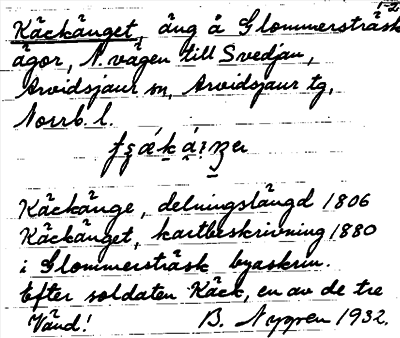 Käckänget, äng å Glommersträsk
ägor, N. vägen till Svedjan,
Arvidsjaur sn, Arvidsjaur tg,
Norrb. l.
Käckänge, delningslängd 1806
Käckänget, kartbeskrivning 1880
i Glommersträsk byaskrin.
Efter soldaten Käck, en av de tre
Vänd! B. Nygren 1932.